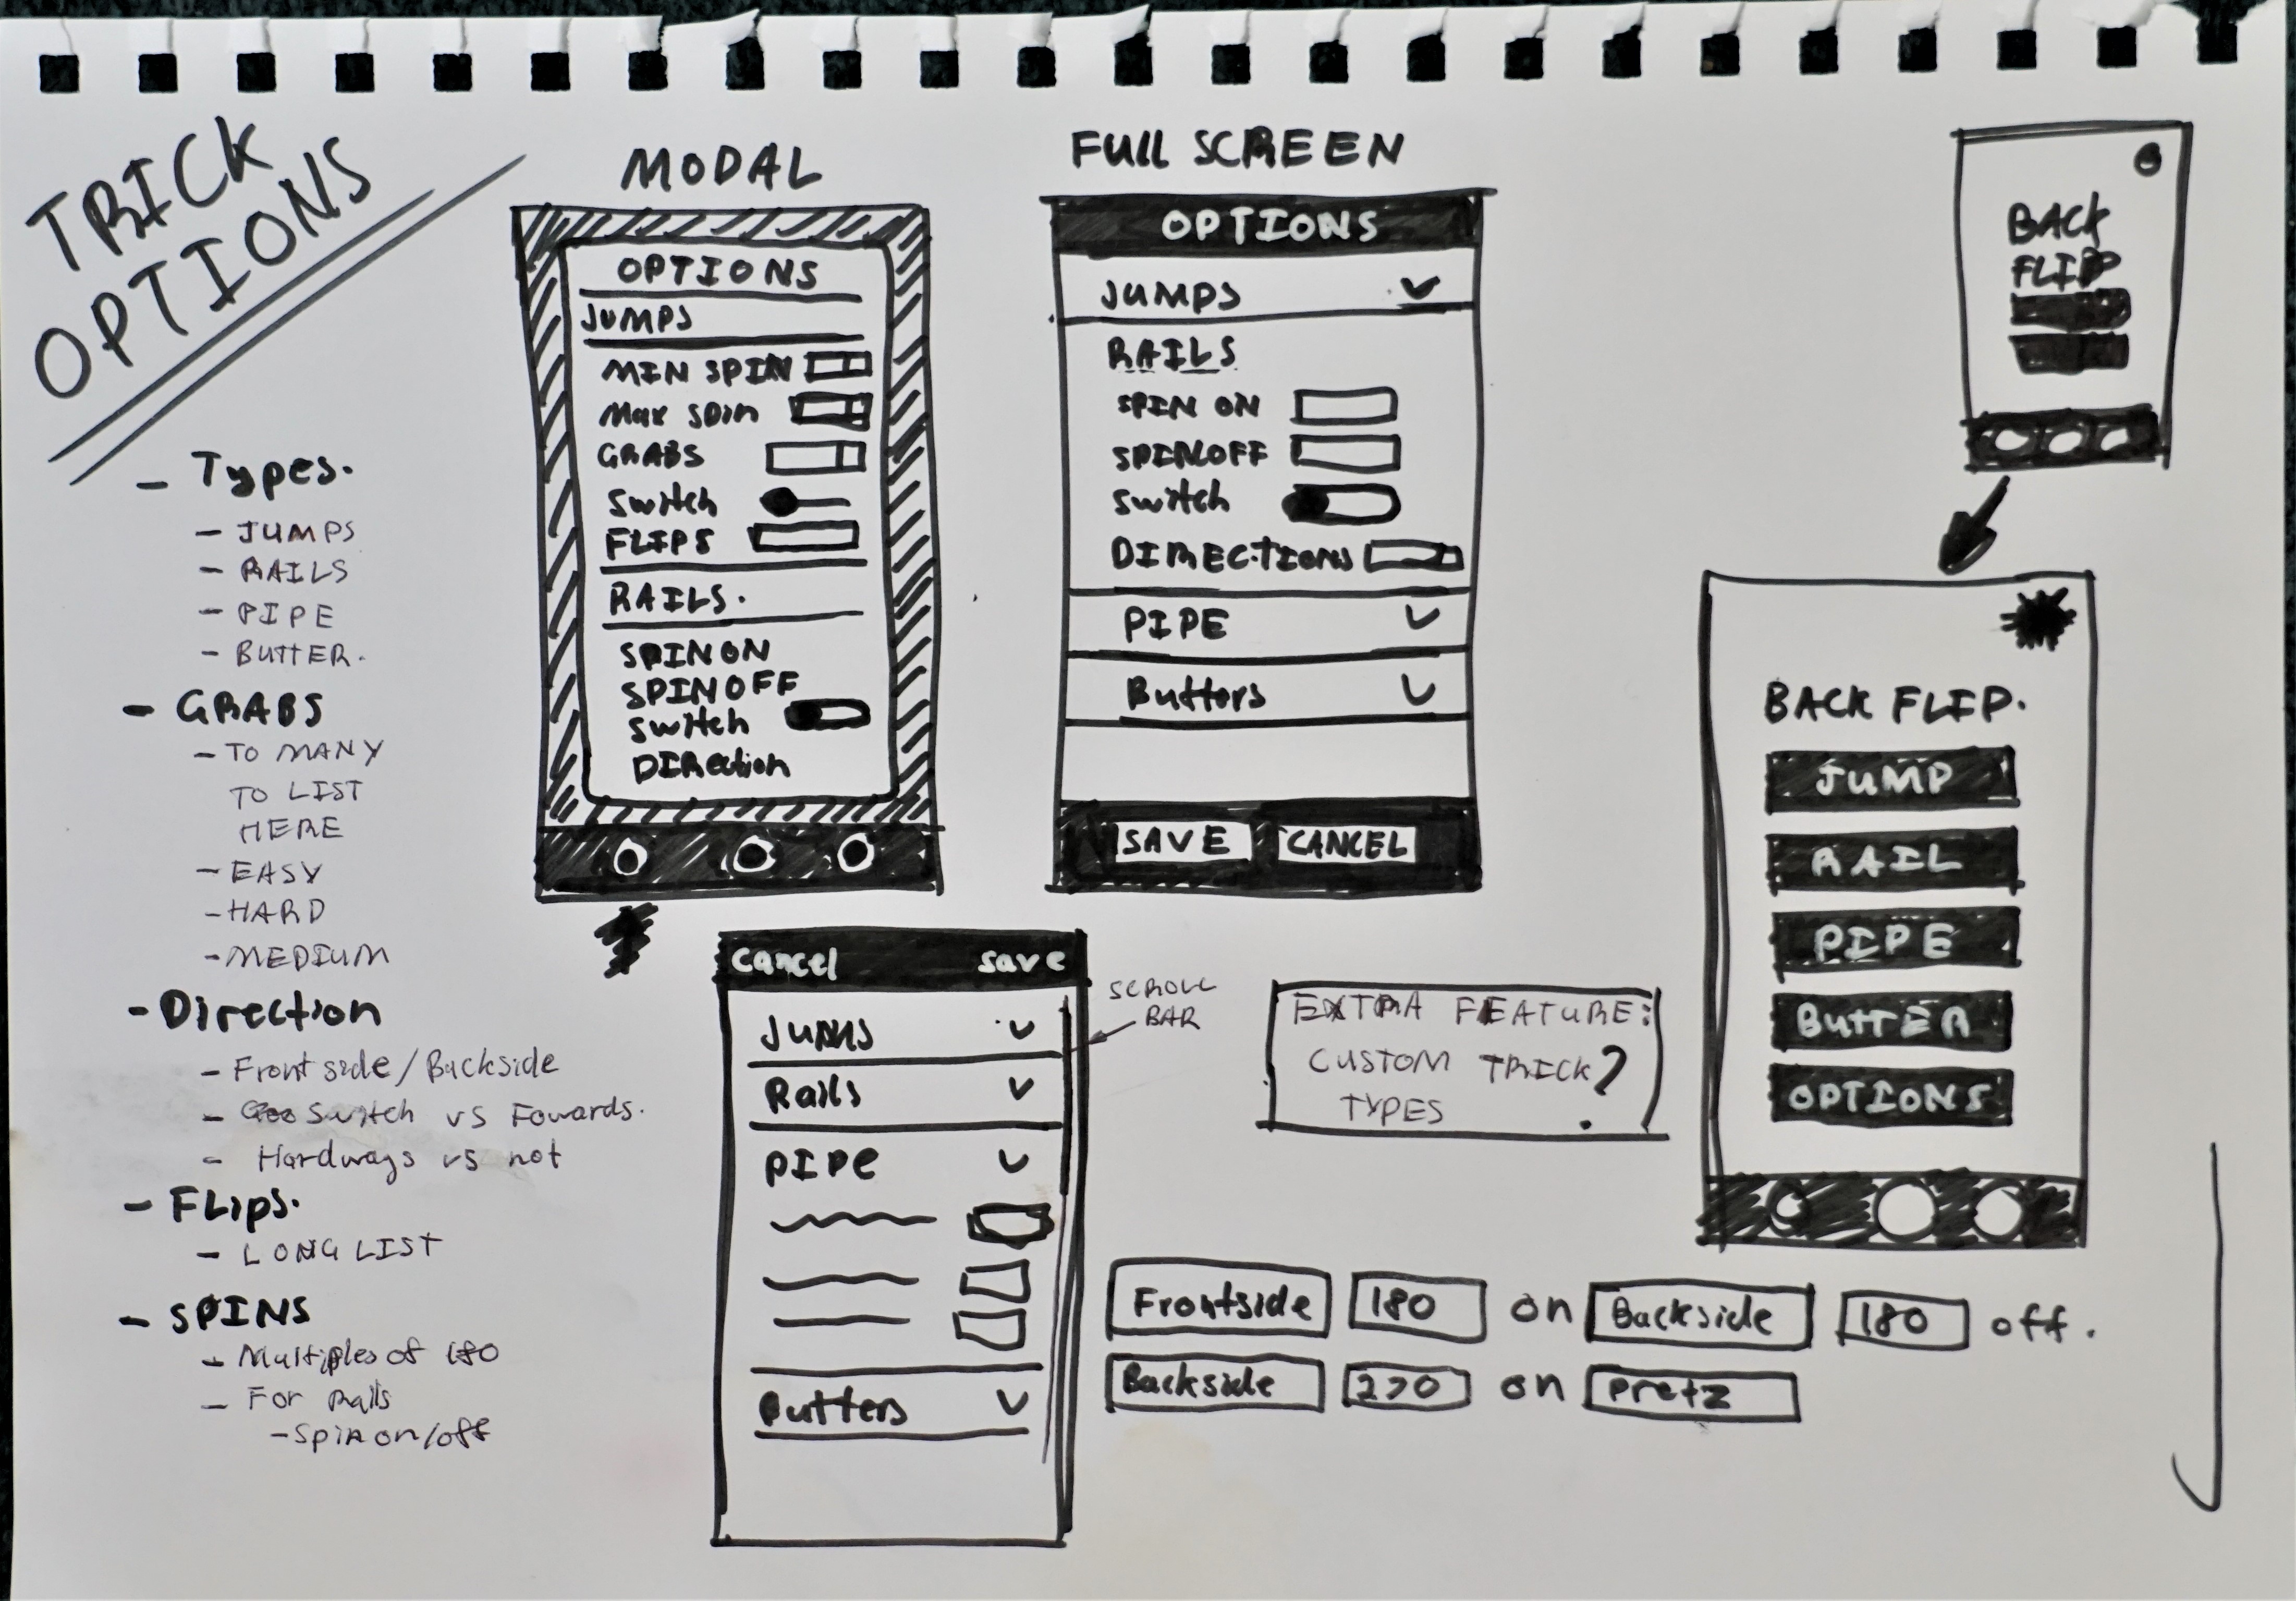 TRICK
OPTIONS
- Types.
- JUMPS
- RAILS
- PIPE
- BUTTER.
- GRABS
- TO MANY
TO LIST
HERE
- EASY
- HARD
- MEDIUM
- Direction
- Frontside/Backside
- Switch vs Fowards.
- Hardways vs not
- FLips.
- LONG LIST
- SPINS
- Multiples of 180
- For Rails
- Spin on/off
MODAL
OPTIONS
JUMPS
MIN SPIN
Max spin
GRABS
Switch
FLIPS
RAILS.
SPIN ON
SPIN OFF
switch
DIRection
FUll SCREEN
OPTIONS
JUMPS
RAILS
SPIN ON
SPINOFF
switch
DIRECTIONS
PIPE
Butters
SAVE CANCEL
Cancel save
Jumps
Rails
PIPe
Butters
SCROLL
BAR
EXTRA FEATURE:
CUSTOM TRICK
TYPES ?
BACK
FLIP
BACK FLIP.
JUMP
RAIL
PIPE
BUTTER
OPTIONS
Frontside 180 on Backside 180 off.
Backside 270 on pretz